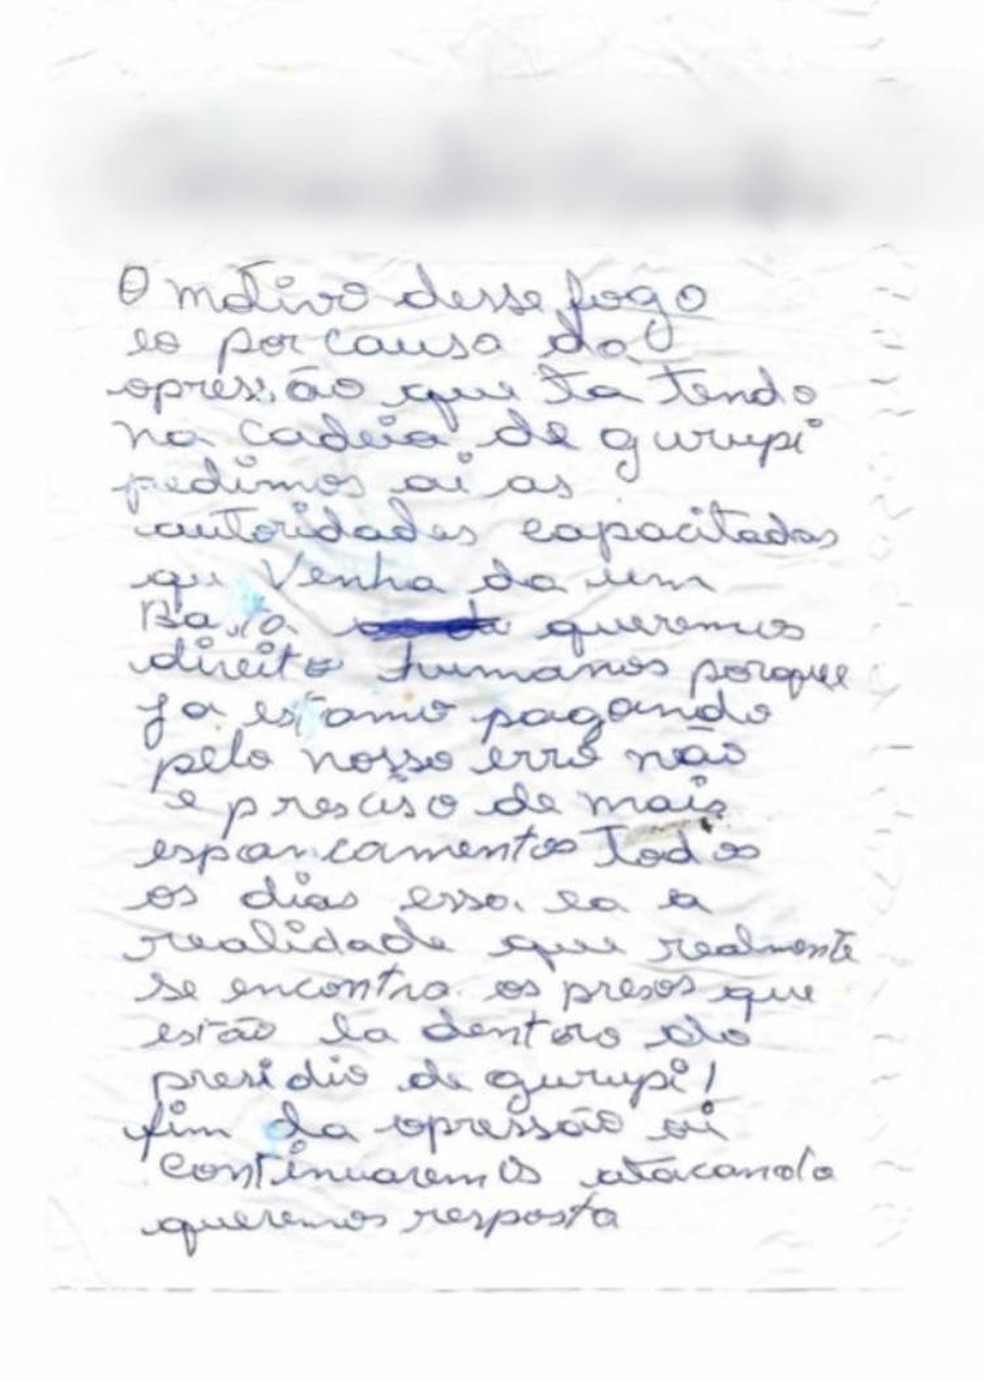 O motivo desse fogo
eo por causa da
opressão que ta tendo
na cadeia de gurupi
pedimos ai as
autoridades capacitadas
qu Venha da um
queremos
direito humanos porque
ja estamo pagando
pelo nosso erro não
e presciso de mais
espancamentos Todos
os dias essa ea a
realidade que realmente
se encontra os presos que
estão la dentro do
presidio de gurupi!
fim da opressão oi
continuaremos atacando
queremos resposta